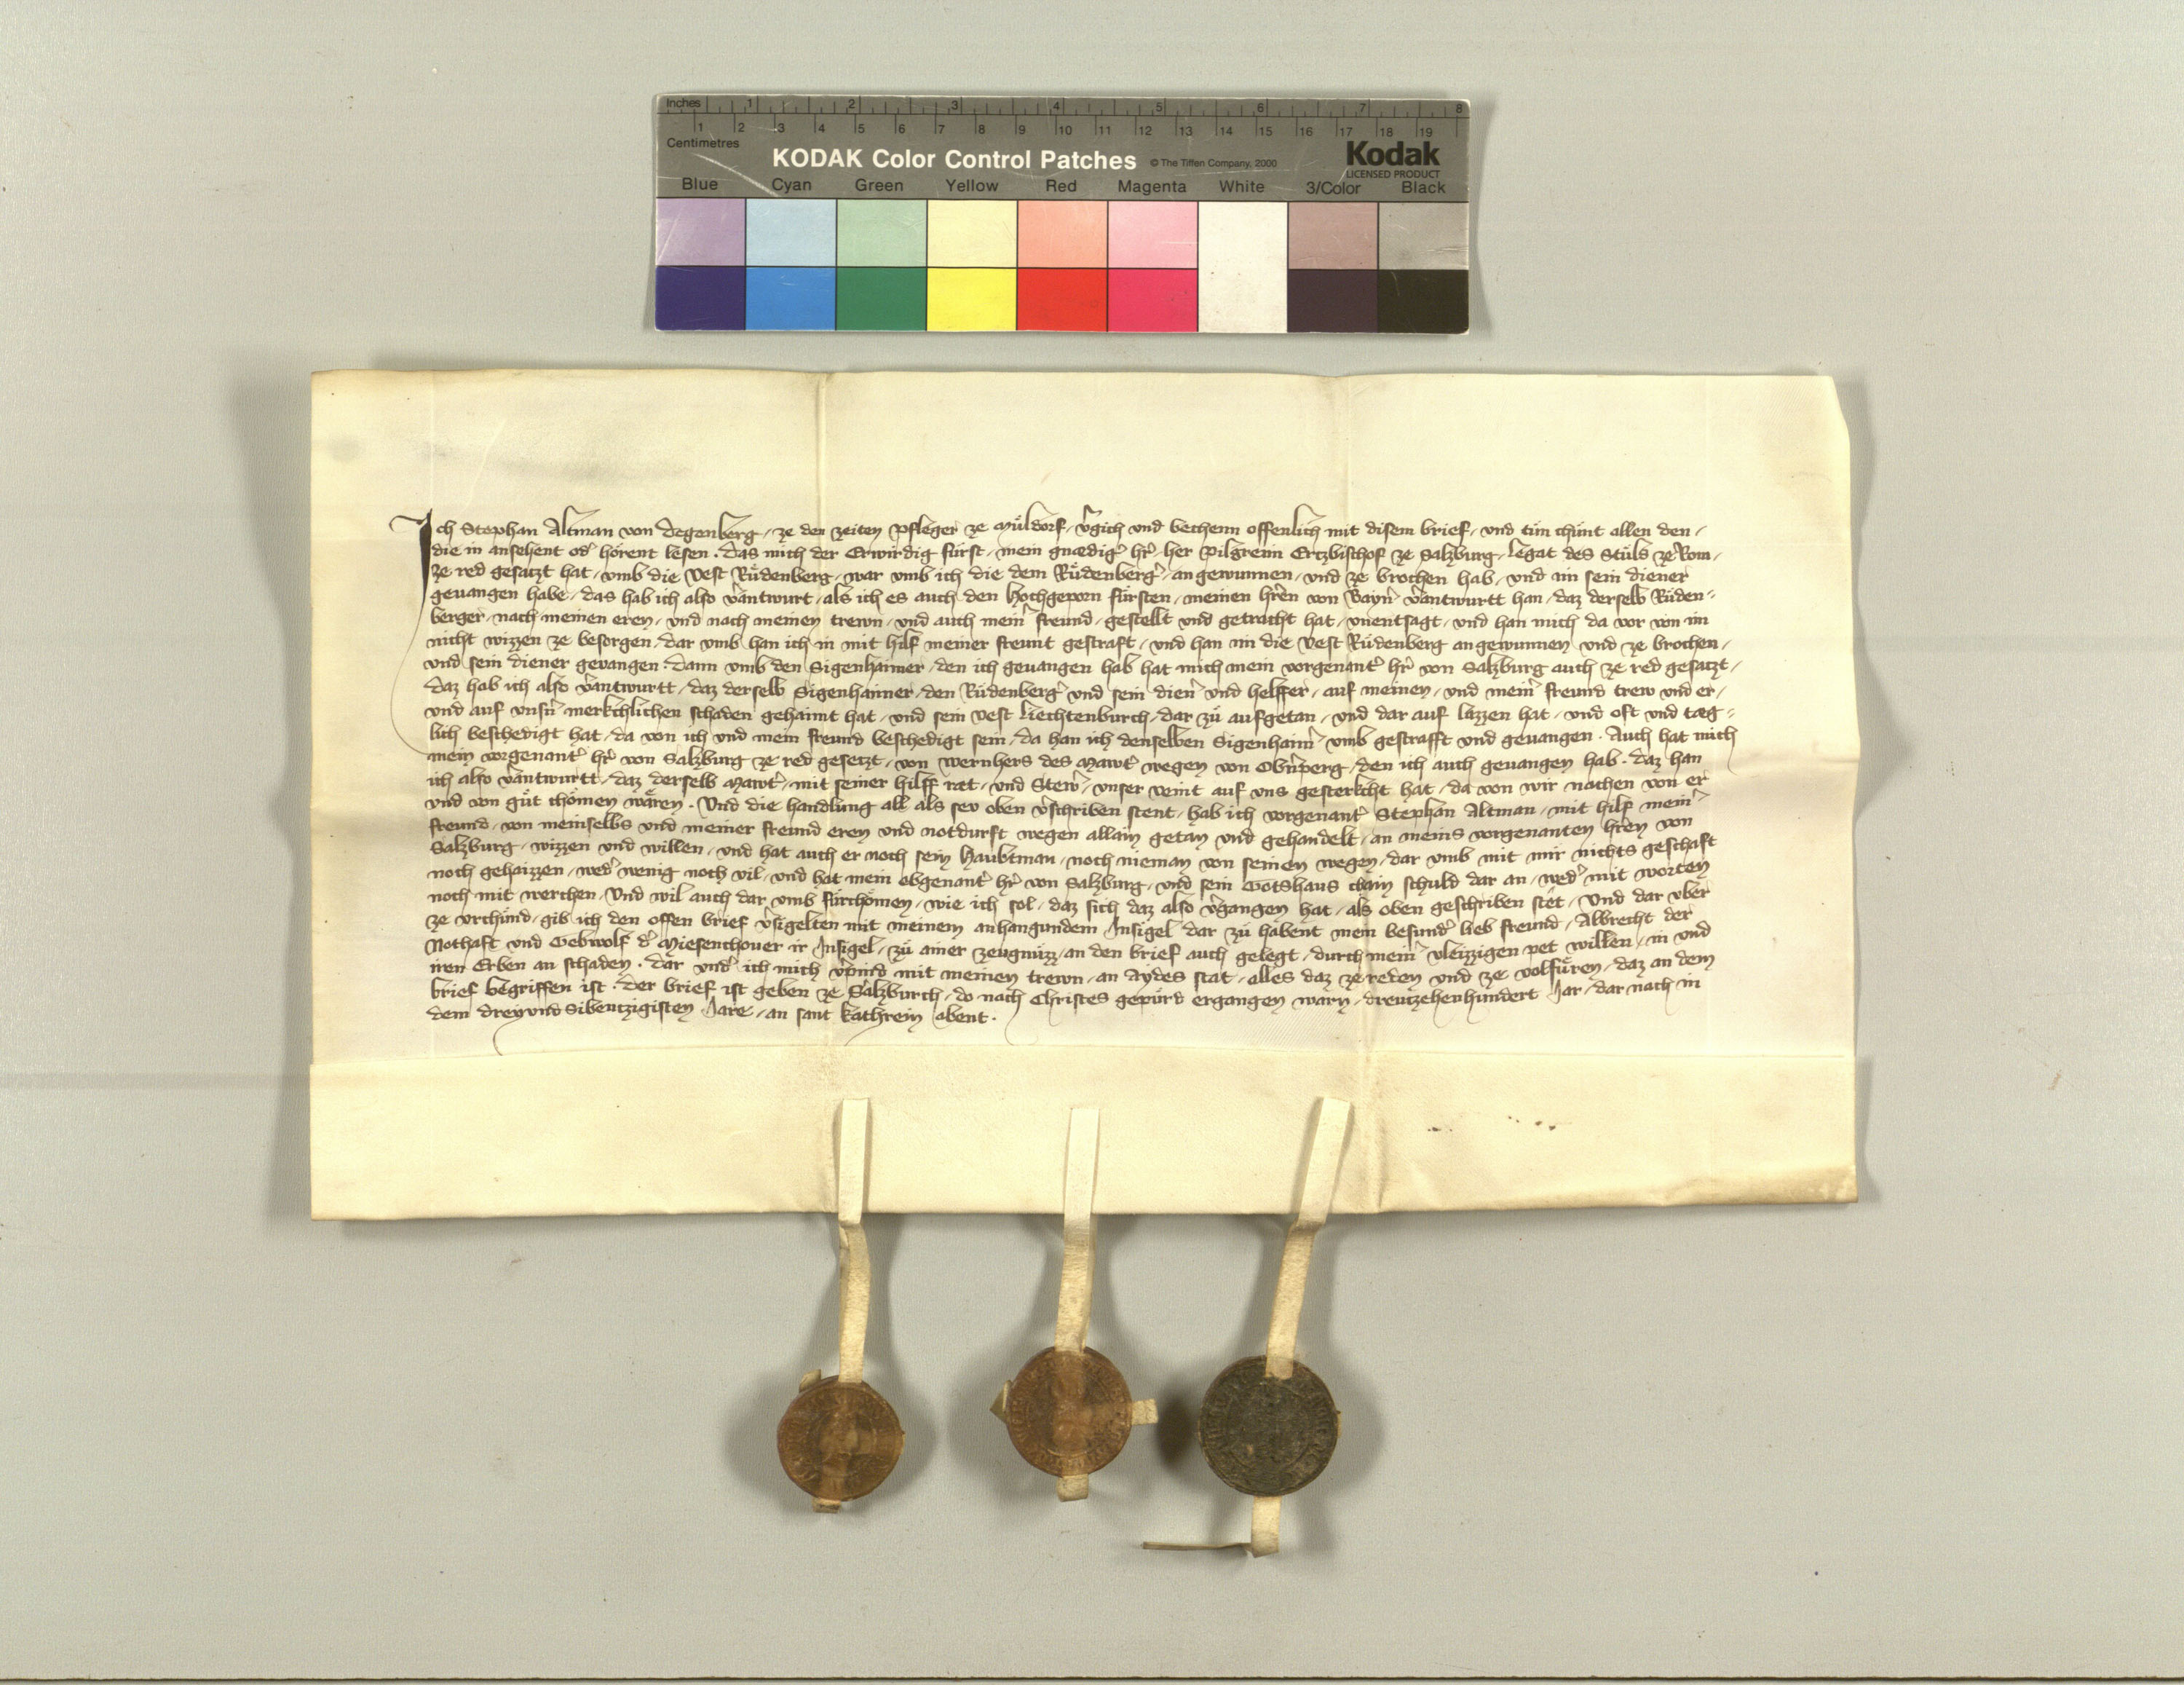 Inches 1 2 3 4 5 6 7 8
1 2 3 4 5 6 7 8 9 10 11 12 13 14 15 16 17 18 19
Centimetres
KODAK Color Control Patches © The Tiffen Company, 2000 Kodak
LICENSED PRODUCT
Blue Cyan Green Yellow Red Magenta White 3/Color Black
Ich Stephan Altman von Degenberg / ze den zeiten Pfleger ze Müldorf / v̾gich vnd bechenn offenlich mit disem brief / vnd tün chünt allen den /
die in ansehent od̾ hörent lesen . Das mich der Erwirdig fürst / mein gnædig̾ hr̾ / her Pilgreim Ertzbischof ze Salzburg / Legat des Stüls ze Rom /
ze red gesatzt hat / vmb die Vest Rüdenberg / war vmb ich die dem Rüdenberg̾ / angewunnen / vnd ze brochen hab / vnd im sein diener
geuangen habe / das hab ich also v̾antwurt / als ich es auch den Hochgeporn fürsten / meinen hr̾en von Bayrn̾ v̾antwurtt han / daz derselb Rüden⸗
berger / nach meinen eren / vnd nach meinen trewn / vnd auch mein̾ freund / gestellt vnd getracht hat / vnentsagt / vnd han mich da vor von im
nicht wizzen ze besorgen / dar vmb han ich in mit hilf meiner freunt gestraft / vnd han im die Vest Rüdenberg angewunnen vnd ze brochen /
vnd sein diener geuangen . Dann vmb den Sigenhaimer / den ich geuangen hab hat mich mein vorgenant̾ hr̾ von Salzburg auch ze red gesatzt /
daz hab ich also v̾antwurtt / daz derselb Sigenhaimer / den Rüdenberg̾ vnd sein dien̾ vnd helffer / auf meinen / vnd mein̾ freund trew vnd er /
vnd auf vnsn̾ merkchlichen schaden gehaimt hat / vnd sein Vest Liechtenburch / dar zü aufgetan / vnd dar auf lazzen hat / vnd oft vnd tæg⸗
lich beschedigt hat / da von ich vnd mein freund beschedigt sein / da han ich denselben Sigenhaim̾ vmb gestrafft vnd geuangen . Auch hat mich
mein vorgenant̾ hr̾ von Salzburg ze red gesetzt / von Wernhers des Mawt̾ wegen von Obn̾perg / den ich auch geuangen hab . daz han
ich also v̾antwurtt / daz derselb Mawt̾ / mit seiner hilff rat / vnd Stew̾ / vnser veint auf vns gesterkcht hat / da von wir nachen von er
vnd von güt chömen wären . Vnd die handlung all als sev oben v̾schriben stent / hab ich vorgenant̾ Stephan Altman / mit hilf mein̾
freund / von meinselbs vnd meiner freund eren vnd notdurft wegen allain getan vnd gehandelt / an meins vorgenanten hr̾en von
Salzburg / wizzen vnd willen / vnd hat auch er noch sein Haubtman / noch nieman von seinen wegen / dar vmb mit mir nichts geschaft
noch gehaizzen / wed̾ wenig noch vil / vnd hat mein obgenant̾ hr̾ von Salzburg / vnd sein Gotshaus chain schuld dar an / wed̾ mit worten
noch mit werchen / Vnd wil auch dar vmb fürchömen / wie ich sol / daz sich daz also v̾gangen hat / als oben geschriben stet / Vnd dar vber
ze vrchünd / gib ich den offen brief v̾sigelten mit meinem anhangundem Insigel / dar zü habent mein besund̾ lieb freund / Albrecht der
Nothaft vnd Gebwolf d̾ Miesenchouer ir Insigel / zü ainer zeugnüzz / an den brief auch gelegt / durch mein̾ vleizzigen pet willen / in vnd
iren Erben an schaden . Dar vnd̾ ich mich v̾pind mit meinen trewn / an aydes stat / alles daz ze reden vnd ze volfüren / daz an dem
brief begriffen ist . Der brief ist geben ze Salzburch / do nach Christes gepürd ergangen warn / dreutzehenhundert Jar / dar nach in
dem dreyvnd Sibentzigisten Jare / an sant Kathrein abent .